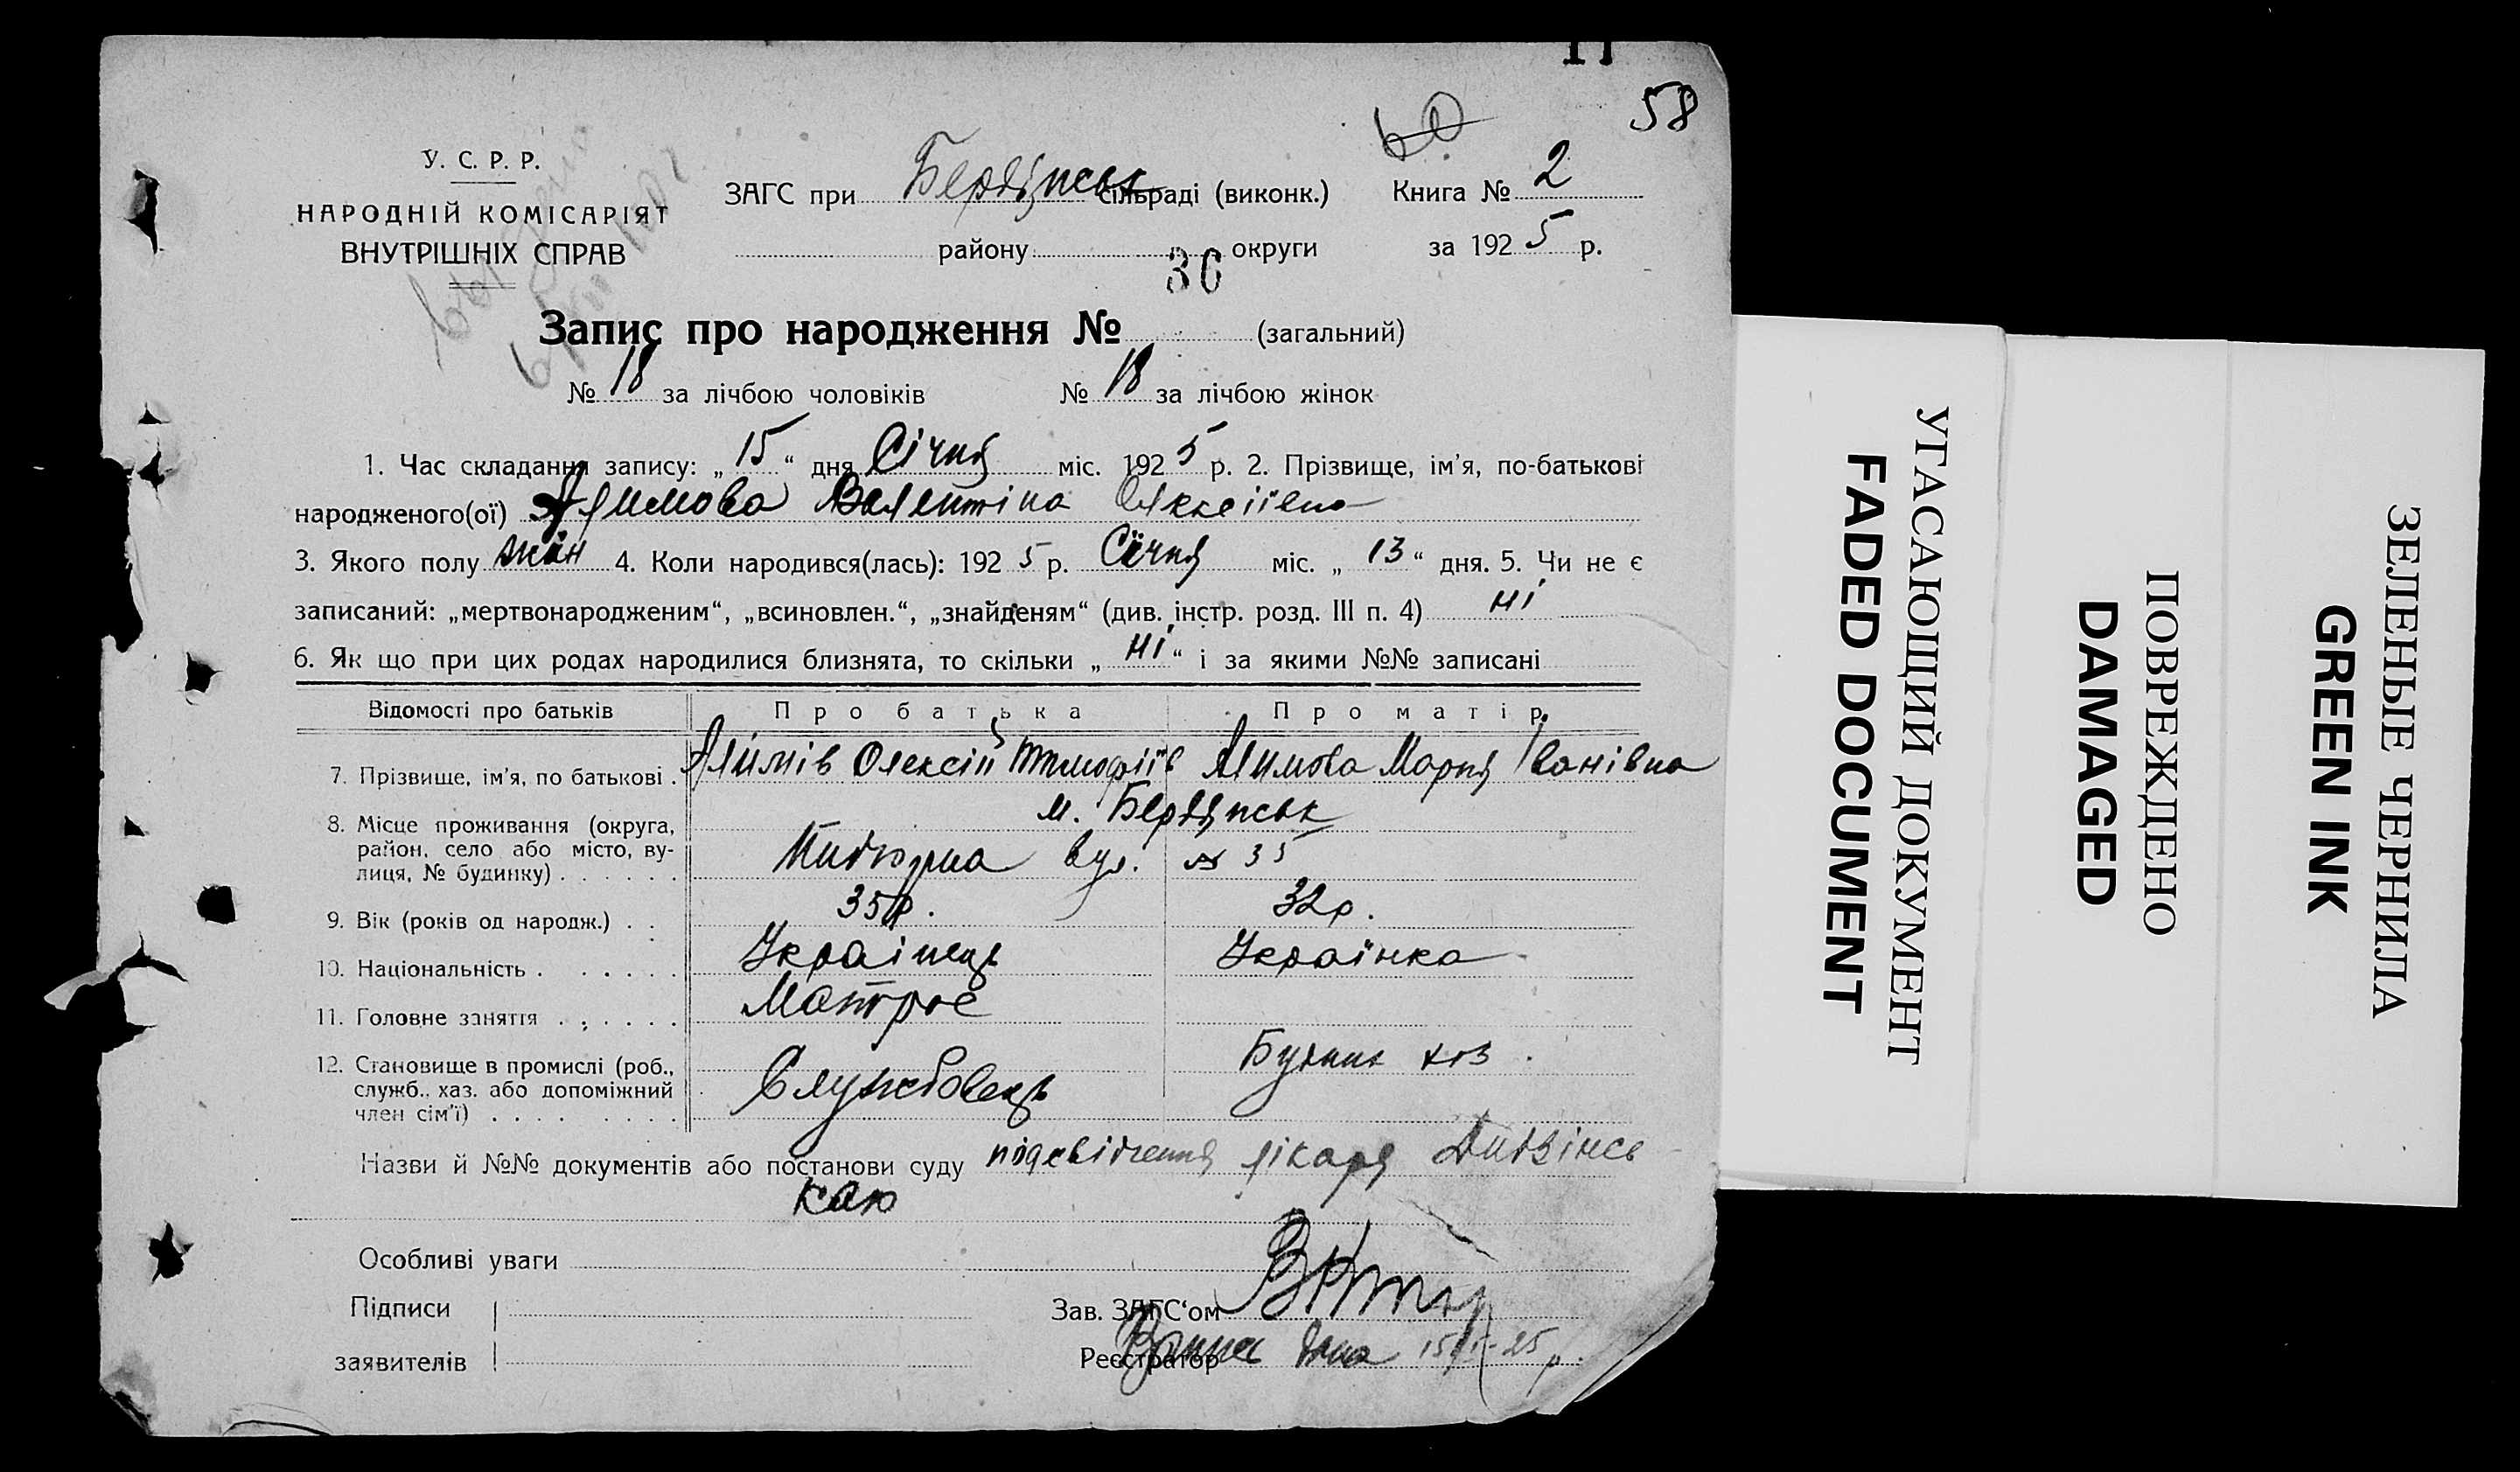 58
У. С. Р. Р.
НАРОДНІЙ КОМІСАРІЯТ
ВНУТРІШНІХ СПРАВ
ЗАГС при Бердянськ сільраді (виконк.) Книга № 2
району округи за 192 5 р.
36
Запис про народження № (загальний)
№ 18 за лічбою чоловіків № 18 за лічбою жінок
1. Час складання запису: „ 15 “ дня Січня міс. 192 5 р. 2. Прізвище, ім’я, по-батькові
народженого(ої) Алимова Валентіна
3. Якого полу жін 4. Коли народився(лась): 192 5 р. Січня міс. „ 13 “ дня. 5. Чи не є
записаний: „мертвонародженим“, „всиновлен.“, „знайденям“ (див. інстр. розд. III п. 4) ні
6. Як що при цих родах народилися близнята, то скільки „ ні “ і за якими №№ записані
Відомості про батьків Про батька Про матір
7. Прізвище, ім’я, по батькові . Алимів Олексій Тимофіїв Алимова Мария Іванівна
8. Місце проживання (округа, район, село або місто, вулиця, № будинку) . . . . . . м. Бердянськ
вул. № 35
9. Вік (років од народж.) . . 35 р. 32 р.
10. Національність . . . . . . Українець Українка
11. Головне заняття . . . . . . Матрос
12. Становище в промислі (роб., служб., хаз. або допоміжний член сім’ї) . . . . . . . . Службовець Будник хоз.
Назви й №№ документів або постанови суду лікаря
Особливі уваги
Підписи Зав. ЗАГС‘ом
заявителів Реєстратор 15/I-25 р.
УГАСАЮЩИЙ ДОКУМЕНТ
FADED DOCUMENT
ПОВРЕЖДЕНО
DAMAGED
ЗЕЛЕНЫЕ ЧЕРНИЛА
GREEN INK